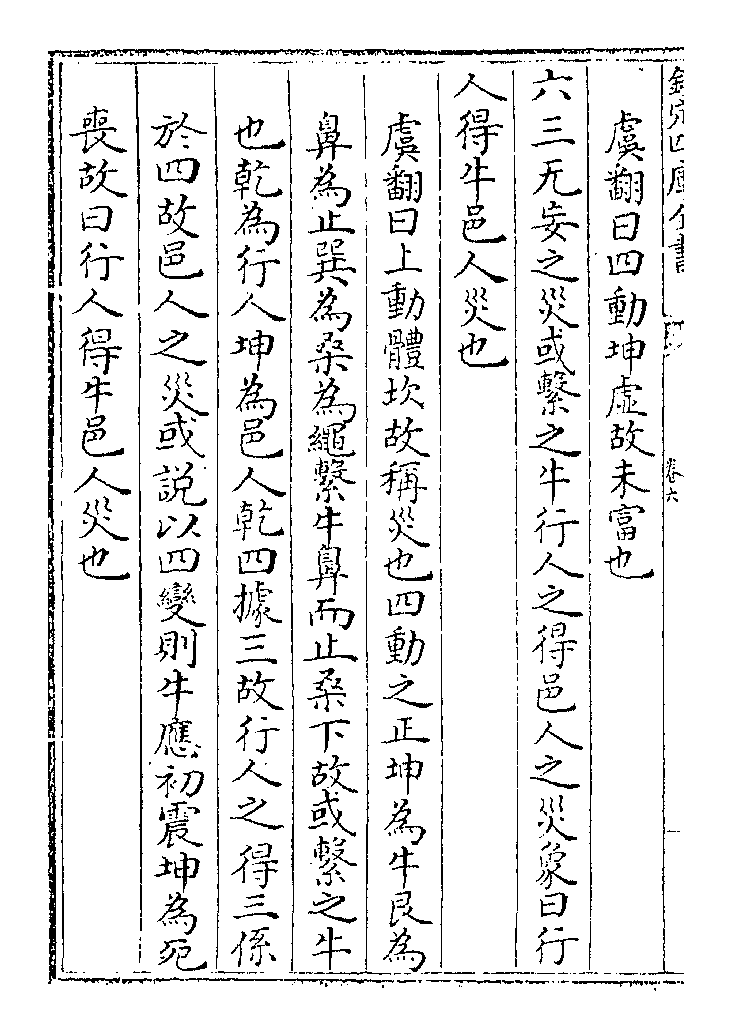 欽定四庫全書
卷六
虞翻曰四動坤虛故未富也
六三无妄之災或繫之牛行人之得邑人之災象曰行
人得牛邑人災也
虞翻曰上動體坎故稱災也四動之正坤為牛艮為
鼻為止巽為桑為繩繫牛鼻而止桑下故或繫之牛
也乾為行人坤為邑人乾四據三故行人之得三係
於四故邑人之災或說以四變則牛應初震坤為死
喪故曰行人得牛邑人災也